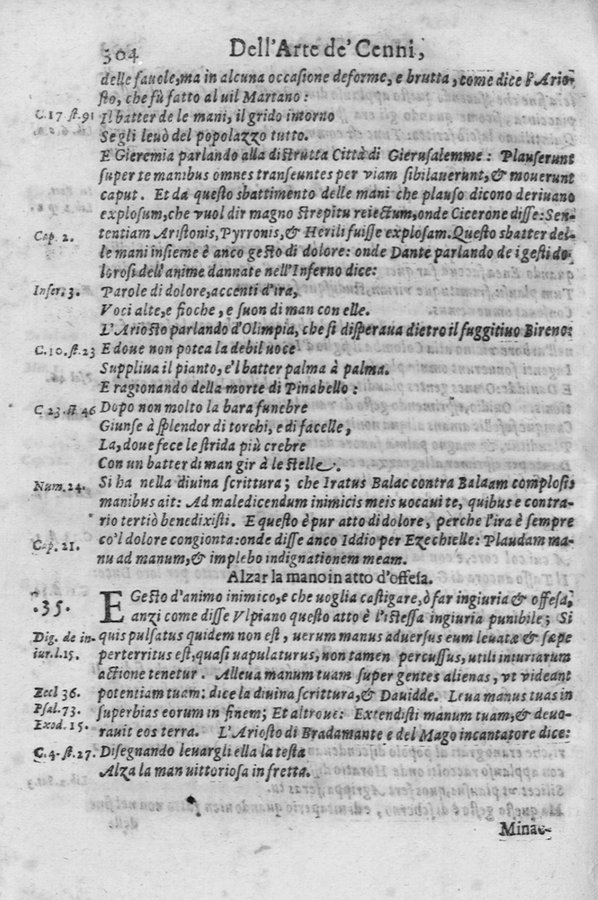 304 Dell'Arte de' Cenni,
delle fauole, ma in alcuna occasione deforme, e brutta, come dice l'Ario-
sto, che fù fatto al uil Martano:
C. 17 st. 91 Il batter de le mani, il grido intorno
Se gli leuò del popolazzo tutto.
E Gieremia parlando alla distrutta Città di Gierusalemme: Plauserunt
super te manibus omnes transeuntes per viam sibilauerunt, & mouerunt
caput. Et da questo sbattimento delle mani che plauso dicono deriuano
explosum, che vuol dir magno strepitu reiectum, onde Cicerone disse: Sen-
tentiam Aristonis, Pyrronis, & Herili fuisse explosam. Questo sbatter del-
Cap. 2. le mani insieme è anco gesto di dolore: onde Dante parlando de i gesti do-
lorosi dell'anime dannate nell'Inferno dice:
Infer. 3. Parole di dolore, accenti d'ira,
Voci alte, e fioche, e suon di man con elle.
L'Ariosto parlando d'Olimpia, che si disperaua dietro il fuggitiuo Bireno:
C. 10. st. 23 E doue non potea la debil uoce
Suppliua il pianto, e'l batter palma à palma.
E ragionando della morte di Pinabello:
C 23. st. 46 Dopo non molto la bara funebre
Giunse à splendor di torchi, e di facelle,
La, doue fece le strida più crebre
Con un batter di man gir à le stelle.
Num. 24. Si ha nella diuina scrittura; che Iratus Balac contra Balaam complosis
manibus ait: Ad maledicendum inimicis meis uocaui te, quibus e contra-
rio tertiò benedixisti. E questo è pur atto di dolore, perche l'ira è sempre
Cap. 21. co'l dolore congionta: onde disse anco Iddio per Ezechielle: Plaudam ma-
nu ad manum, & implebo indignationem meam.
Alzar la mano in atto d'offesa.
.35. E Gesto d'animo inimico, e che uoglia castigare, ò far ingiuria & offesa,
anzi come disse Vlpiano questo atto è l'istessa ingiuria punibile; Si
Dig. de in- quis pulsatus quidem non est, uerum manus aduersus eum leuatæ & sæpe
iur. l. 15. perterritus est, quasi uapulaturus, non tamen percussus, utili iniuriarum
actione tenetur. Alleua manum tuam super gentes alienas, vt videant
Eccl 36. potentiam tuam: dice la diuina scrittura, & Dauidde. Leua manus tuas in
Psal. 73. superbias eorum in finem; Et altroue: Extendisti manum tuam, & deuo-
Exod. 15. rauit eos terra. L'Ariosto di Bradamante e del Mago incantatore dice:
C. 4. st. 27. Disegnando leuargli ella la testa
Alza la man uittoriosa in fretta.
Minac-